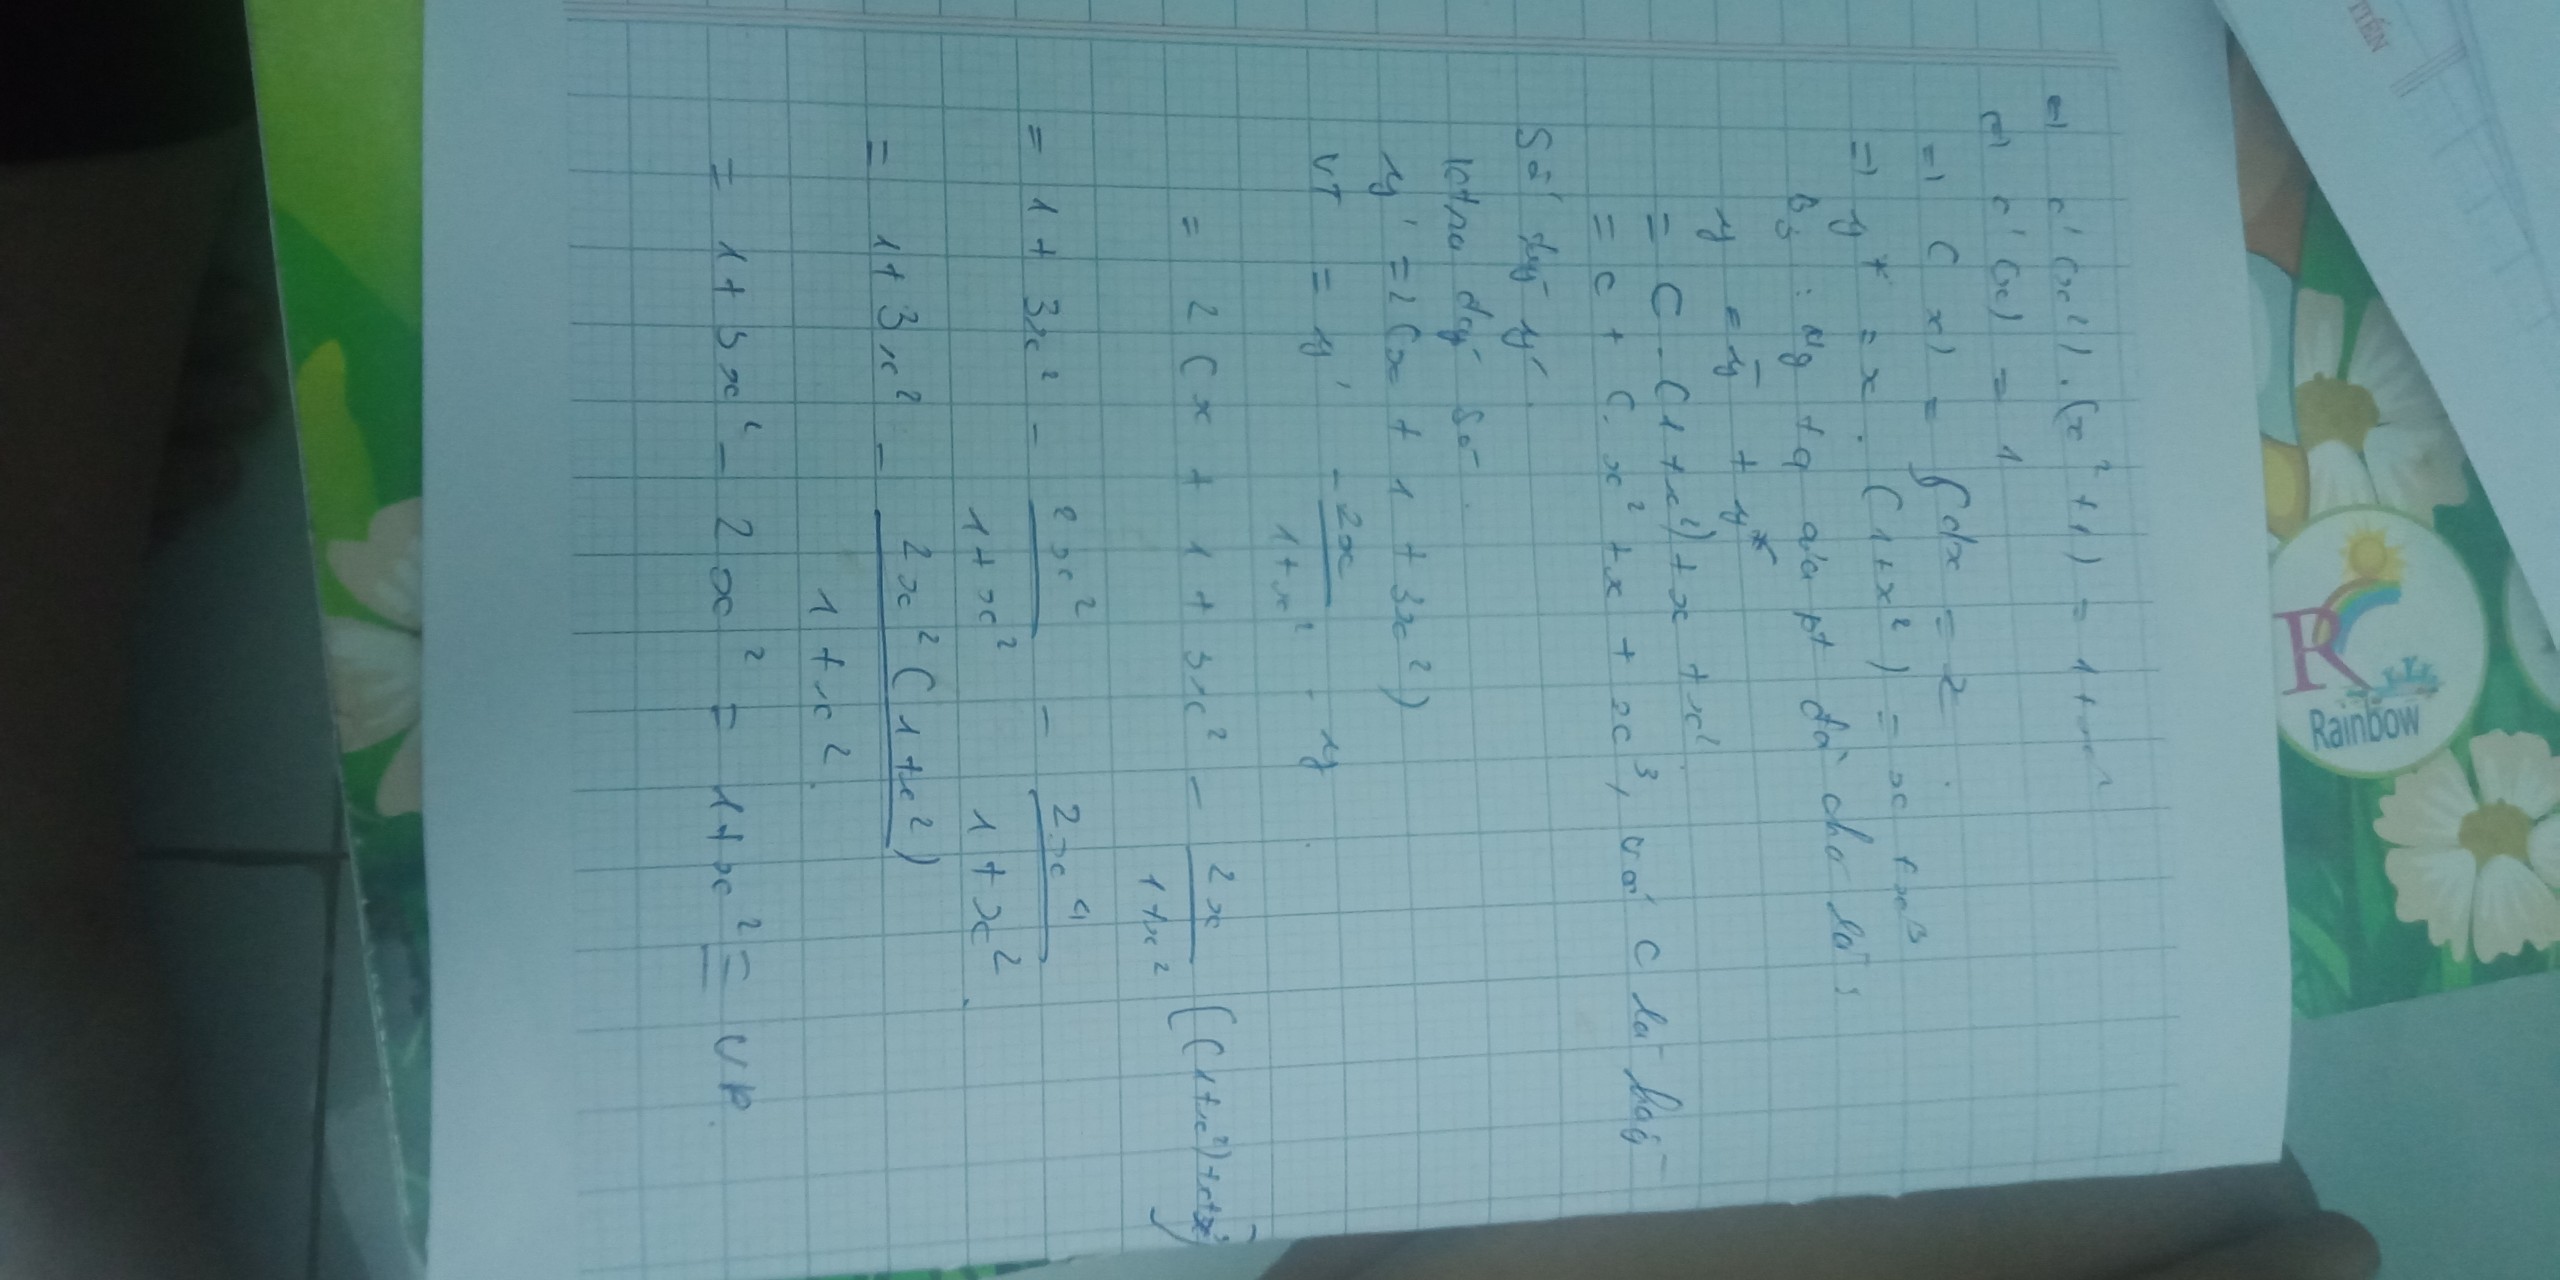 ⇔ c'(x²).(x²+1) = 1+x²
⇔ c'(x) = 1
⇒ C(x) = ∫dx = x
⇒ y* = x.(1+x²) = x + x³
: Ng tq của pt đã cho là
y = ȳ + y*
= C.(1+x²)+x+x³
= c + C.x² + x + x³, với c là hằng
Số tuỳ ý.
ktra đáp số.
y' = 2Cx + 1 + 3x²)
VT = y' - 2x/1+x² . y
= 2Cx + 1 + 3x² - 2x/1+x² (C(1+x²)+x+x³)
= 1 + 3x² - 2x²/1+x² - 2x⁴/1+x².
= 1+3x² - 2x²(1+x²)/1+x².
= 1+3x² - 2x² = 1+x² = VP.
TIẾN
R
Rainbow